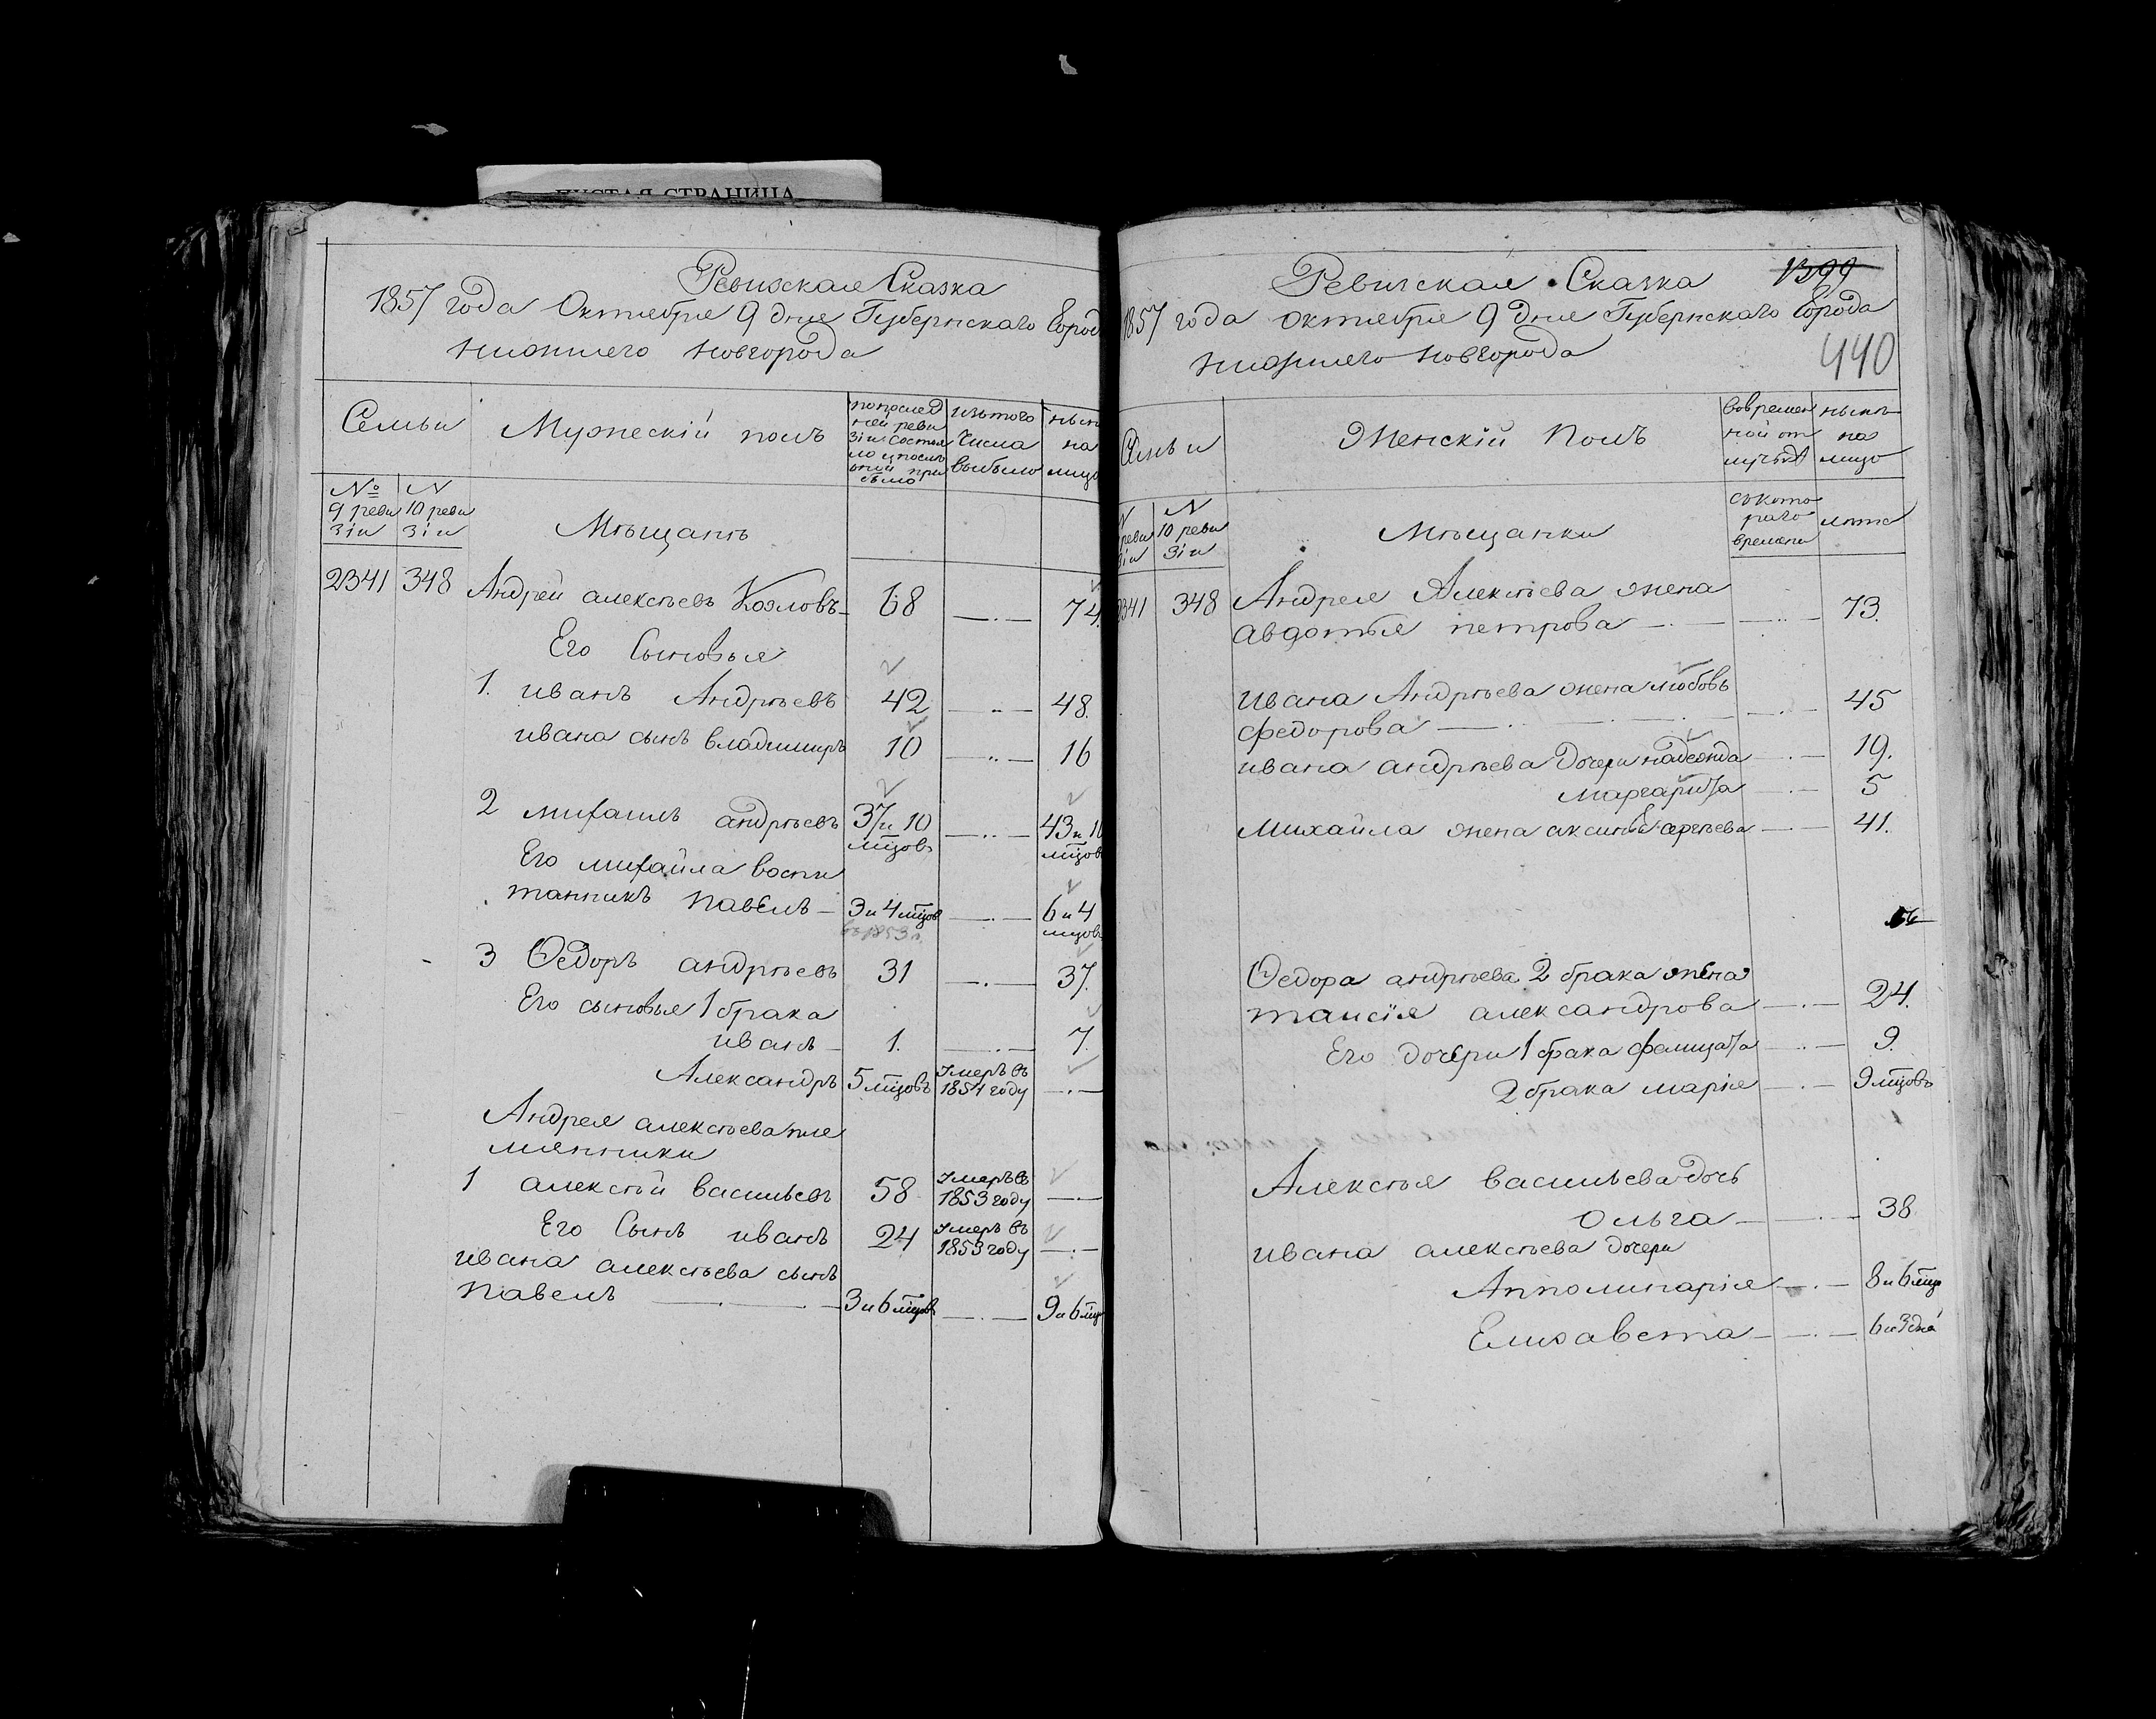 ПУСТАЯ СТРАНИЦА
Ревизская Сказка
1857 года Октября 9 дня Губернскаго Город
нижняго новгорода
Семьи
Мужескій полъ
попослед
ней реви
зіи состоя
ло и послѣ
оной при
было
изътого
числа
выбыло
нын
на
лицо
№
9 реви
зіи
N
10 реви
зіи
Мѣщанѣ
2341 348 Андрей алексѣевъ Козловъ 68 74.
Его Сыновья
1. иванъ Андрѣевъ 42 48.
ивана сынъ владимиръ 10 16
2 михаилъ андрѣевъ 37 и 10 43 и 10
мцовъ мцовъ
Его михайла воспи
танникъ павелъ 3 и 4 мцов 6 и 4
въ 1853 г. мцовъ
3 Ѳедоръ андрѣевъ 31 37.
Его сыновья 1 брака
иванъ 1. 7.
Александръ 5 мцовъ Умеръ въ
1854 году
Андрея алексѣева пле
мянники
1 алексѣй васильевъ 58 Умеръ въ
1853 году
Его Сынъ иванъ 24 Умеръ въ
1853 году
ивана алексѣева сынъ
павелъ 3 и 6 мцовъ 9 и 6 мцо
Ревизская Сказка 1399
1857 года октября 9 дня Губернскаго Города
нижняго новгорода
440
Семьи
Женскій Полъ
вовремен
ной от
лучкѣ
нынѣ
на
лицо
N
реви
зіи
N
10 реви
зіи
Мѣщанки
съкото
раго
времени
лѣта
2341 348 Андрея Алексѣева жена
авдотья петрова 73.
ивана Андрѣева жена любовь
федорова 45
ивана андрѣева Дочери надежда 19.
маргарита 5
Михайла жена аксинья сергѣева 41.
Ѳедора андрѣева 2 брака жена
таисія александрова 24.
Его дочери 1 брака фелицата 9.
2 брака марія 9 мцовъ
Алексѣя васильева дочь
Ольга 38
ивана алексѣева дочери
Апполинарія 8 и 6 мцо
Елизавета 6 и 3 дня